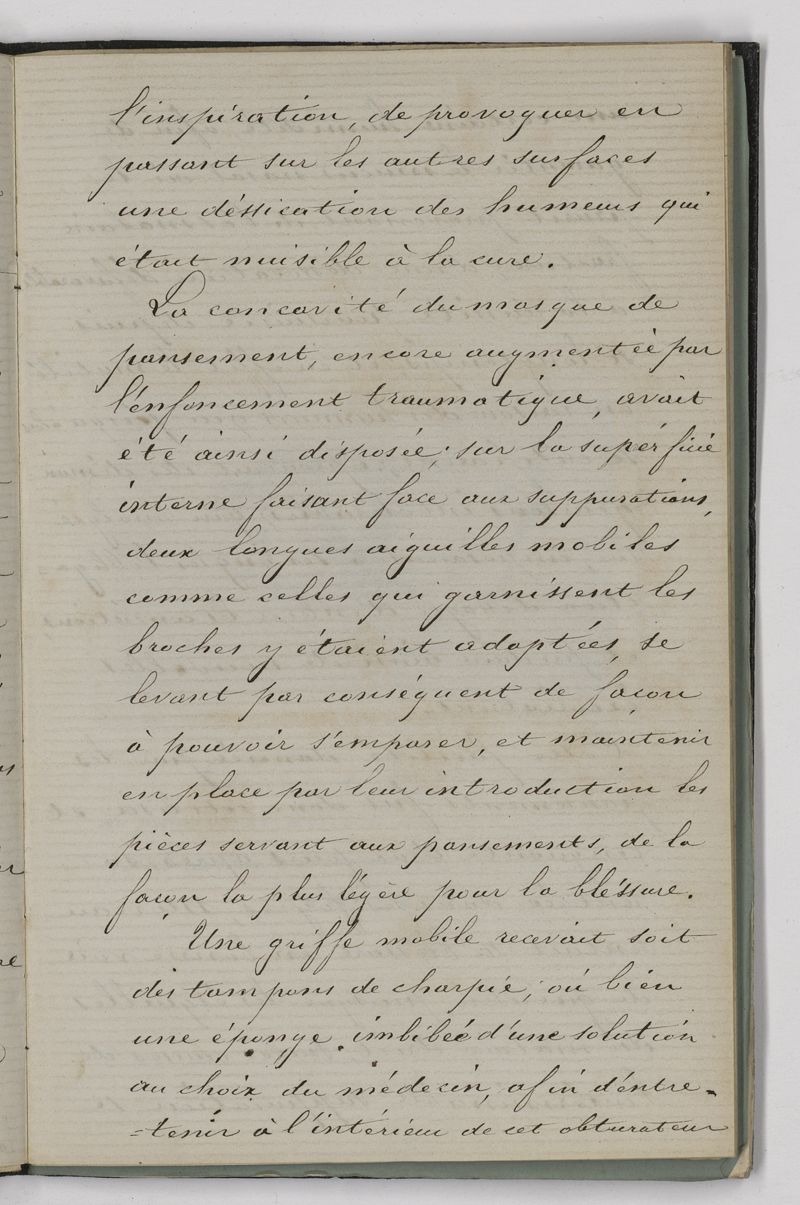 l'inspiration, de provoquer en
passant sur les autres surfaces
une déssication des humeurs qui
était nuisible à la cure.
La concavité du masque de
pansement, encore augmentée par
l'énfoncement traumatique, avait
été ainsi disposée; sur la supérficie
interne faisant face aux suppurations,
deux longues aiguilles mobiles
comme celles qui garnissent les
broches y étaient adaptées, se
levant par conséquent de façon
à pouvoir s'emparer, et maintenir
en place par leur introduction les
pièces servant aux pansements, de la
façon la plus légère pour la bléssure.
Une griffe mobile recevait soit
des tampons de charpie, où bien
une éponge imbibée d'une solution
au choix du médecin, afin d'éntre-
=tenir à l'intérieur de cet obturateur